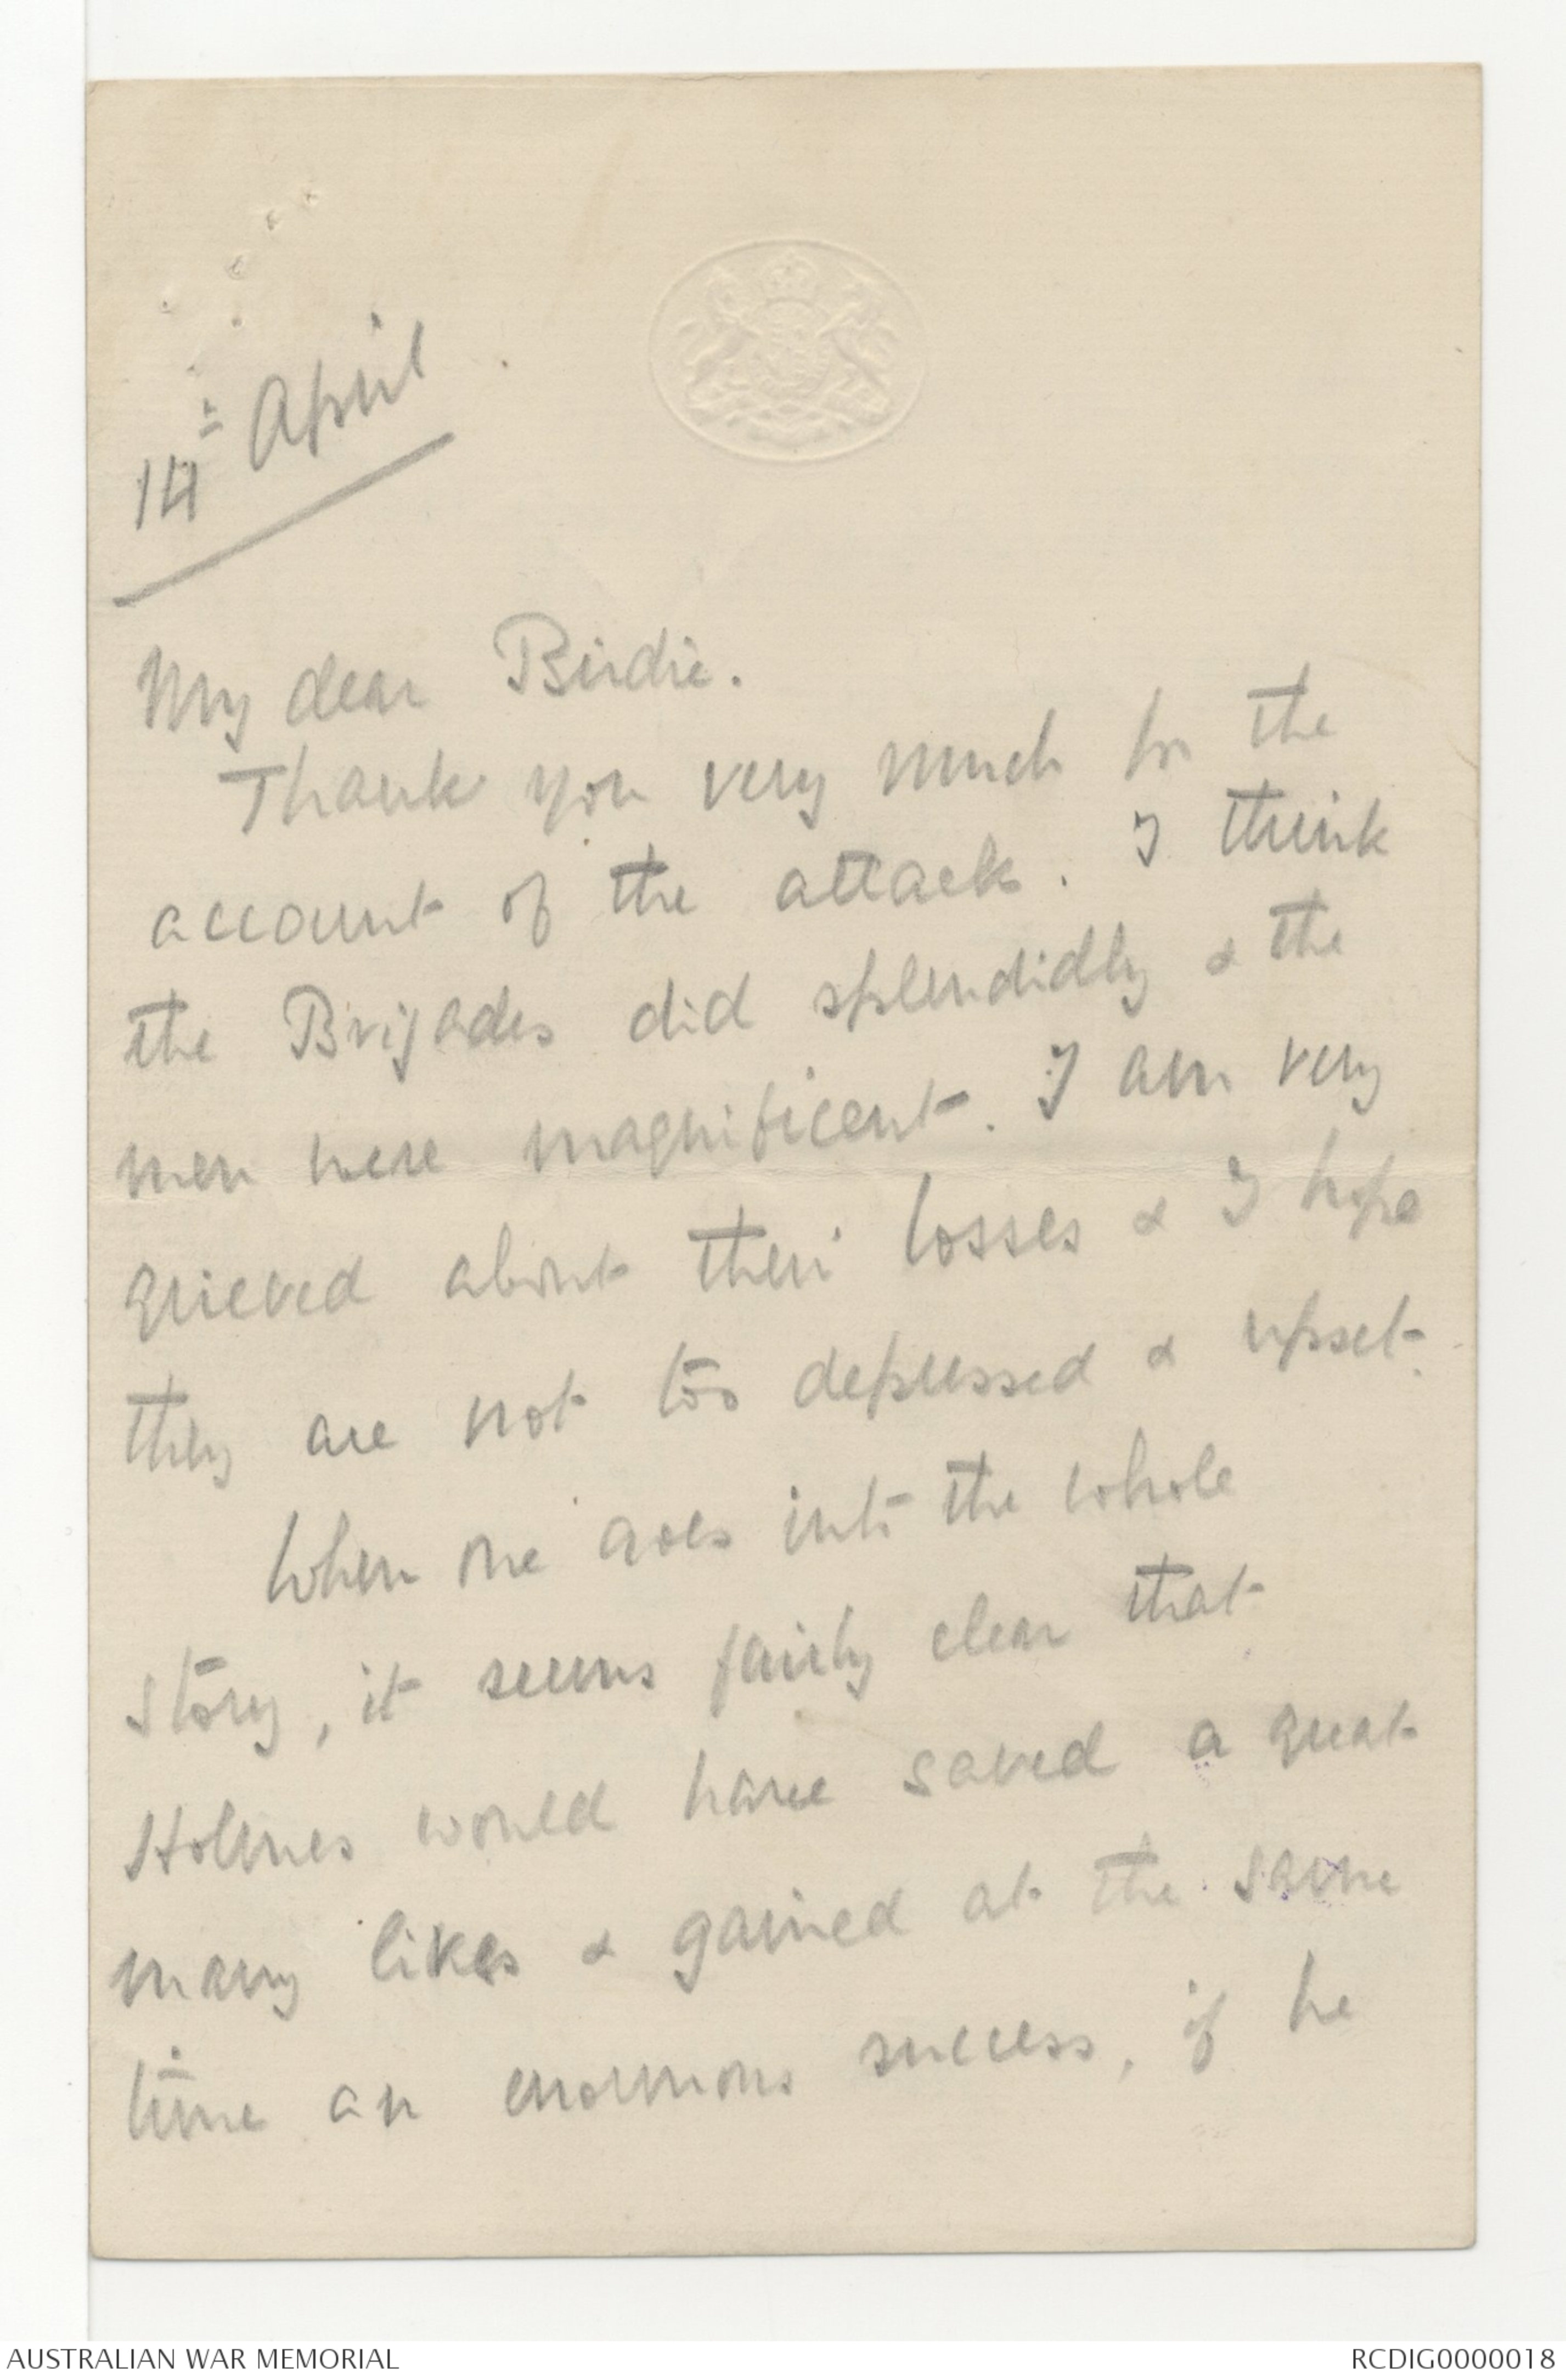 14th April
My dear Birdie.
Thank you very much for the
account of the attack. I think
the Brigades did splendidly & the
men were magnificent. I am very
grieved about their losses & I hope
they are not too depressed & upset.
When one goes into the whole
story, it seems fairly clear that
Holmes would have saved a great
many likes & gained at the same
time an enormous success, if he
AUSTRALIAN WAR MEMORIAL
RCDIG0000018